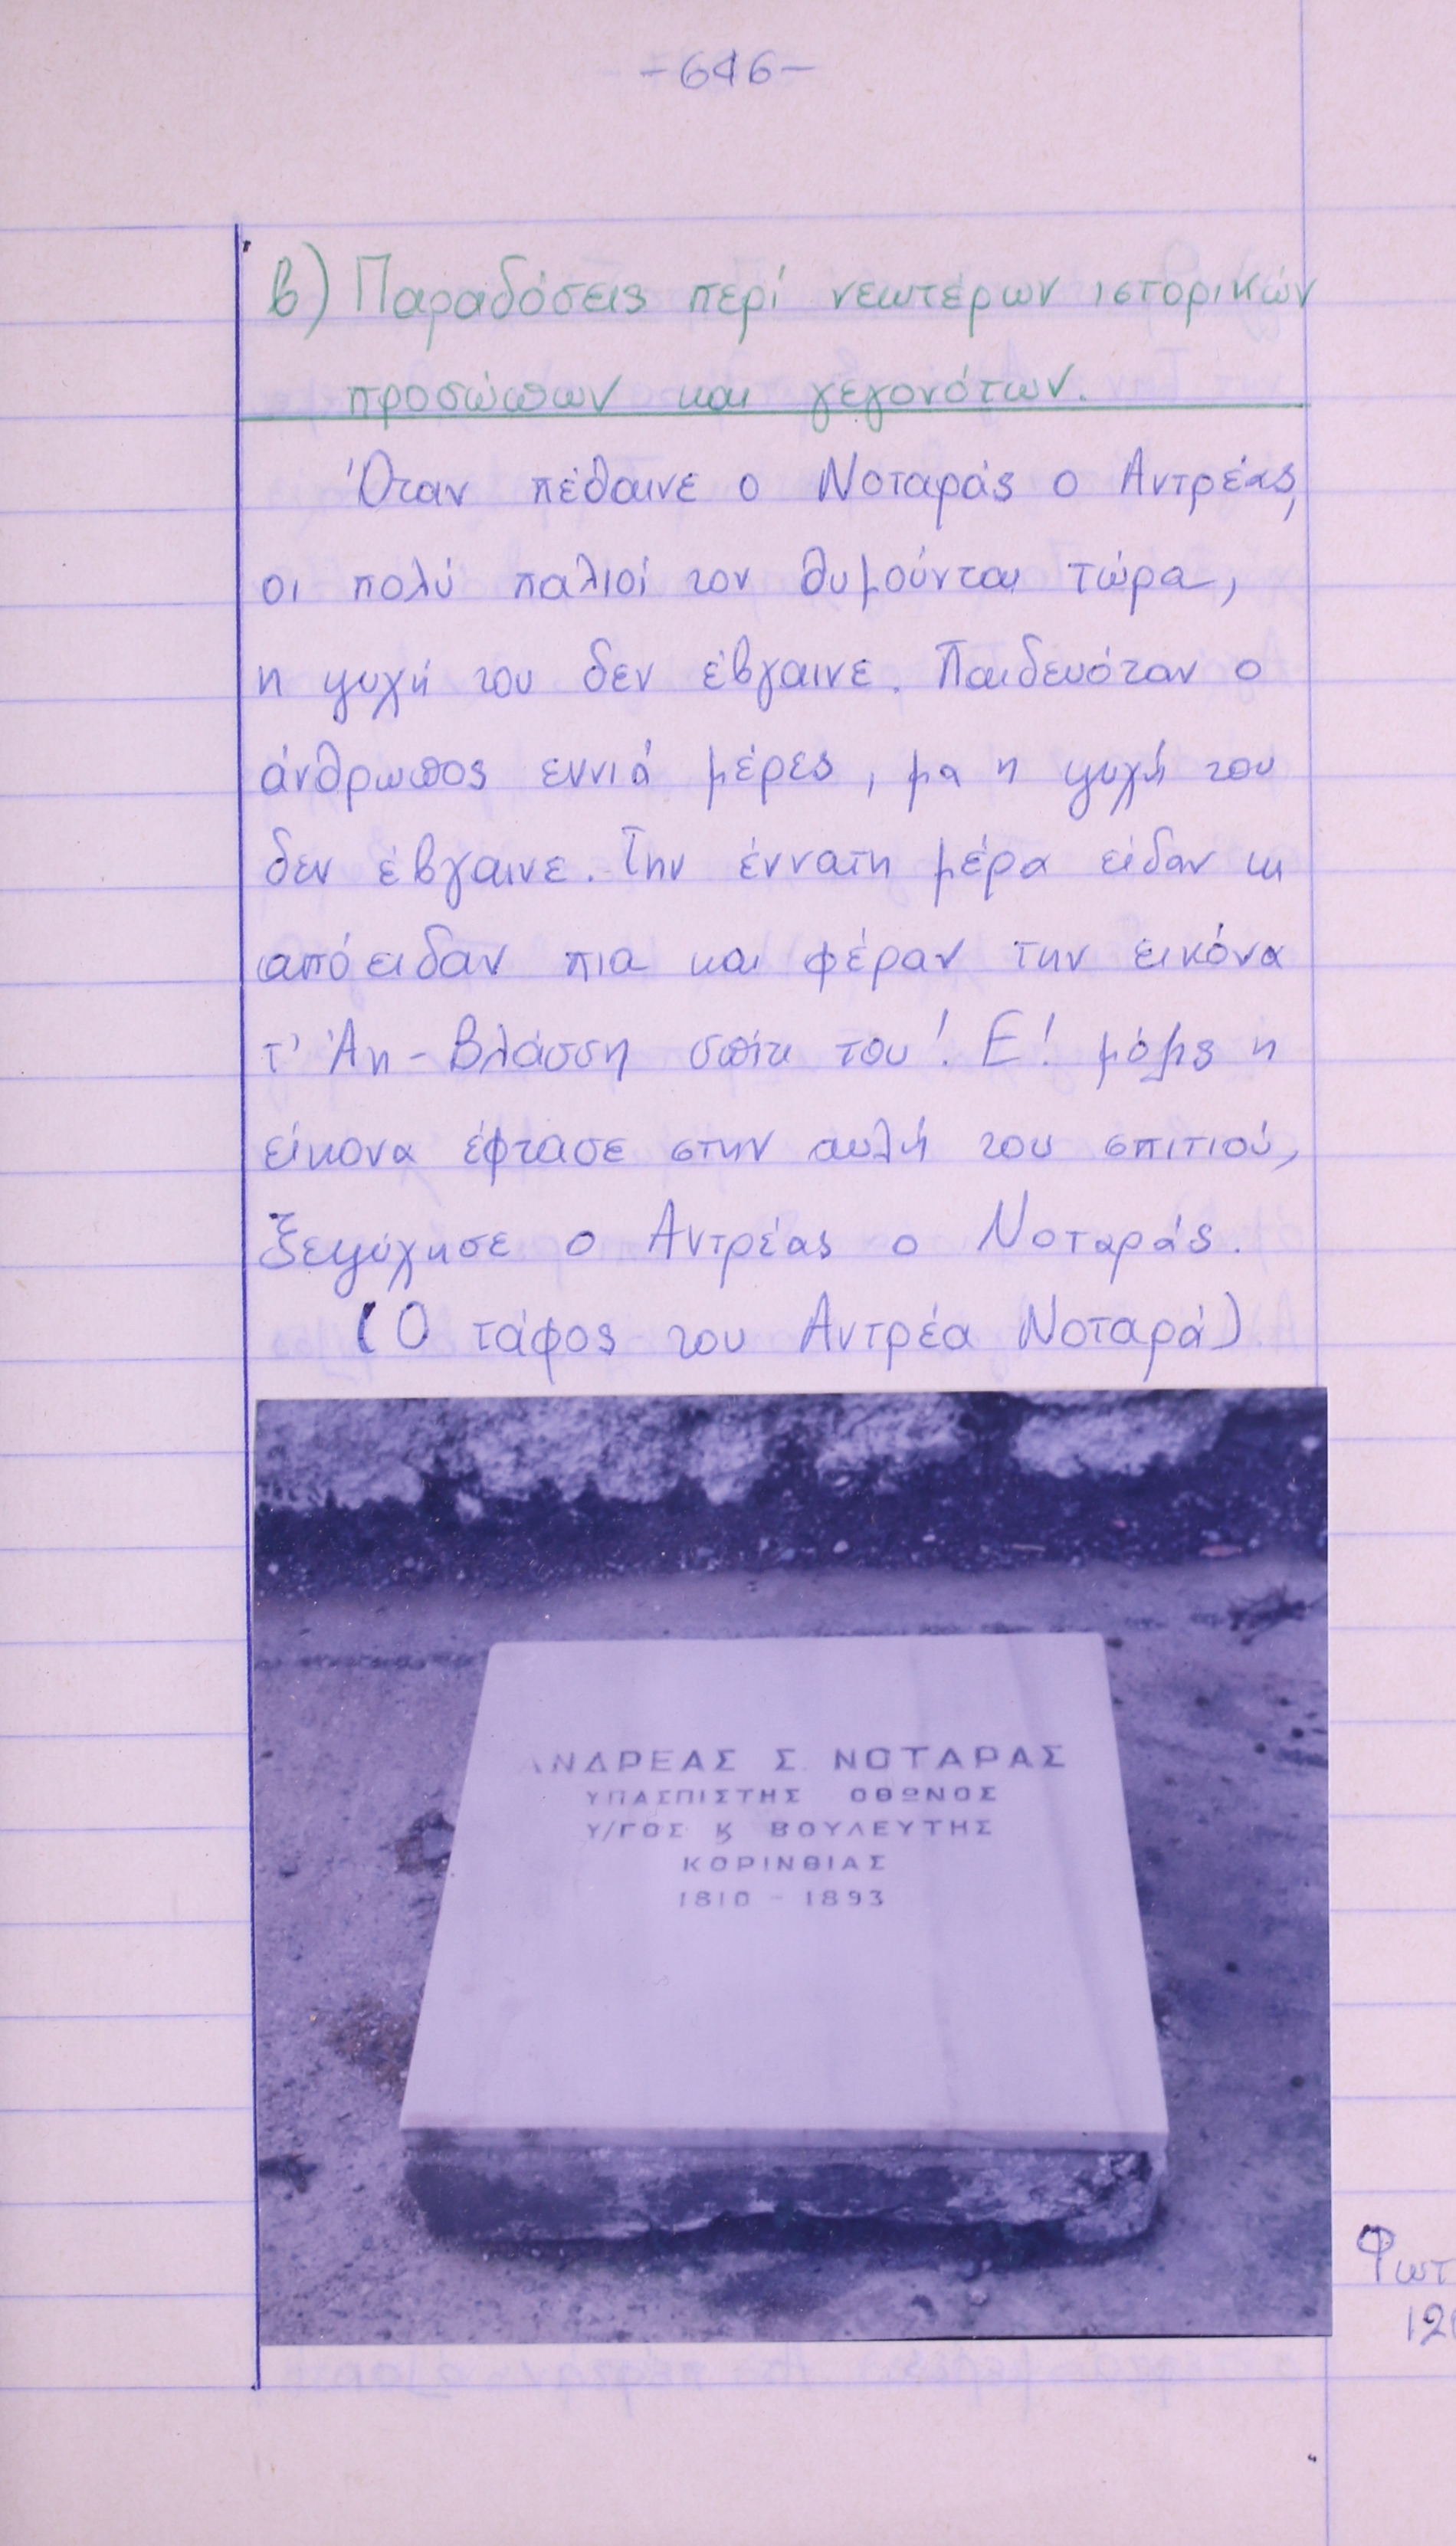 -646-
β) Παραδόσεις περί νεωτέρων ιστορικών
προσώπων και γεγονότων.
Όταν πέθαινε ο Νοταράς ο Αντρέας,
οι πολύ παλιοί τον θυμούνται τώρα,
η ψυχή του δεν έβγαινε. Παιδευόταν ο
άνθρωπος εννιά μέρες, μα η ψυχή του
δεν έβγαινε. Την έννατη μέρα είδαν κι
απόειδαν πια και φέραν την εικόνα
τ' Άη-Βλάσση σπίτι του! Ε! μόλις η
είκονα έφτασε στην αυλή του σπιτιού,
ξεψύχησε ο Αντρέας ο Νοταράς.
(Ο τάφος του Αντρέα Νοταρά)
ΑΝΔΡΕΑΣ Σ. ΝΟΤΑΡΑΣ
ΥΠΑΣΠΙΣΤΗΣ ΟΘΩΝΟΣ
Υ/ΓΟΣ Κ ΒΟΥΛΕΥΤΗΣ
ΚΟΡΙΝΘΙΑΣ
1810 - 1893
Φωτ